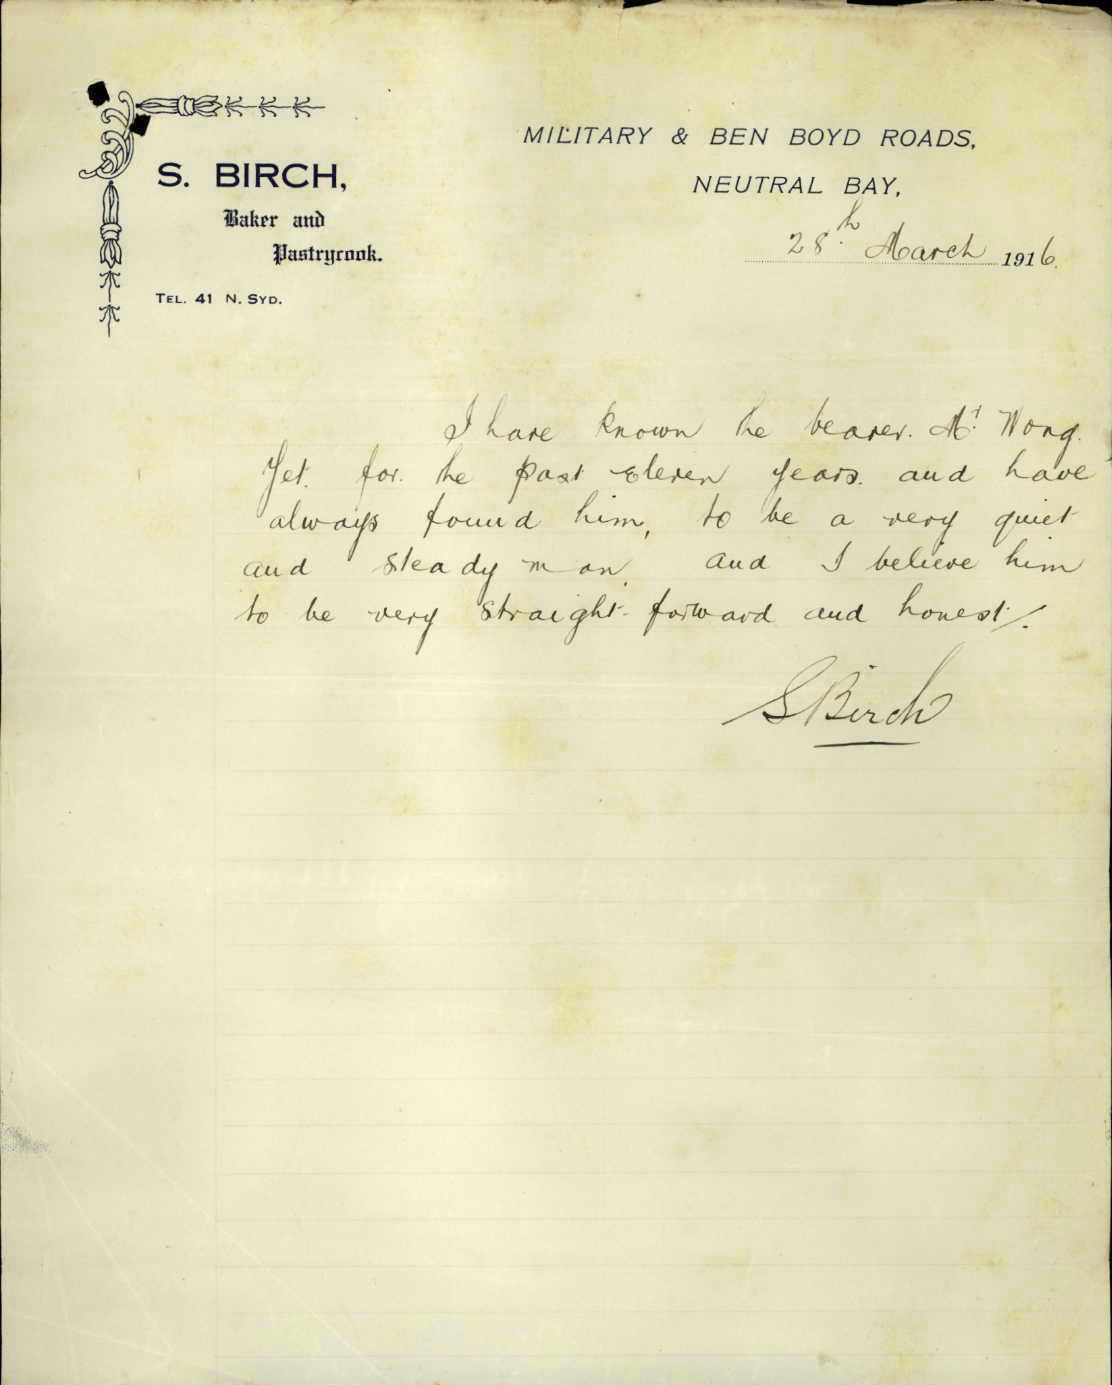 S. BIRCH,
Baker and
Pastrycook.
TEL. 41 N. SYD.
MILITARY & BEN BOYD ROADS,
NEUTRAL BAY,
28th March 1916.
I have known the bearer. Mr Wong.
Yet. for. the past eleven years. and have
always found him, to be a very quiet
and steady man. and I believe him
to be very straight-forward and honest/.
S Birch